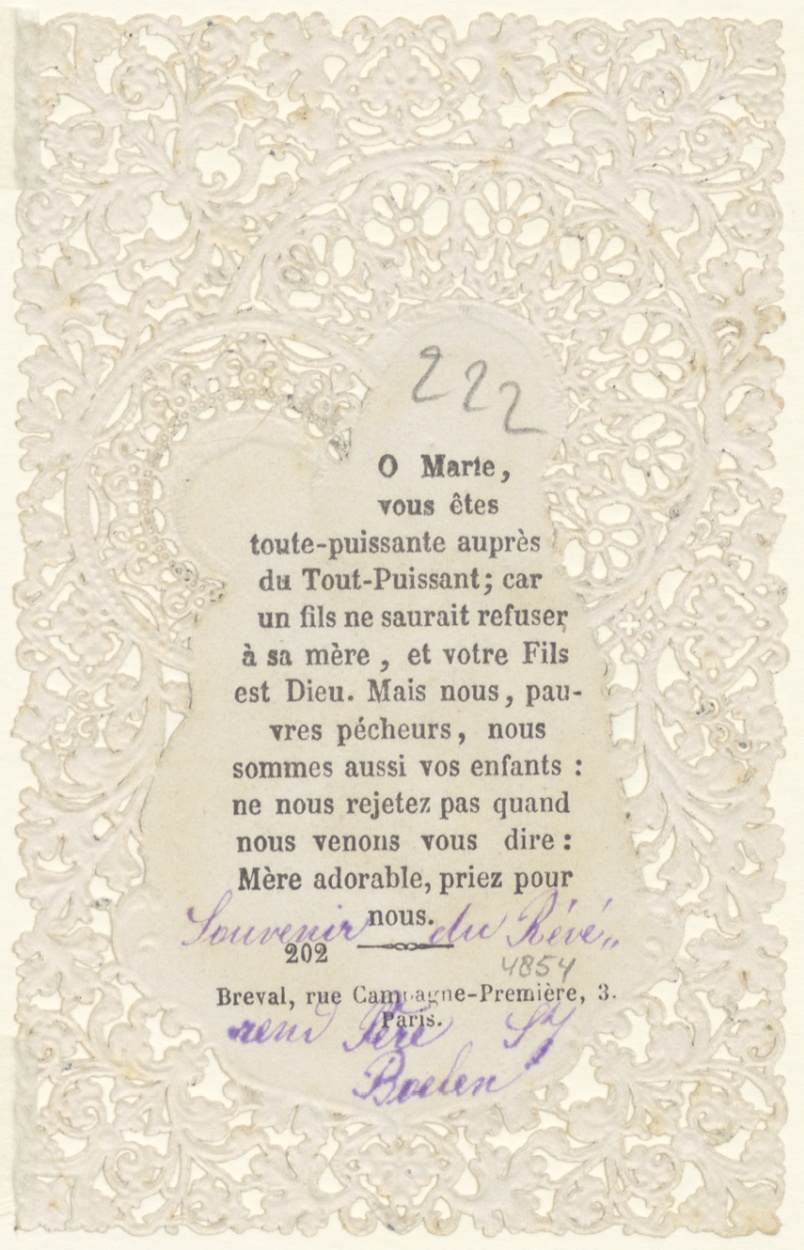 222
O Marie,
vous êtes
toute-puissante auprès
du Tout-Puissant; car
un fils ne saurait refuser
à sa mère, et votre Fils
est Dieu. Mais nous, pau-
vres pécheurs, nous
sommes aussi vos enfants :
ne nous rejetez pas quand
nous venons vous dire :
Mère adorable, priez pour
nous.
Souvenir du Révé„
202
4854
Breval, rue Campagne-Première, 3.
Paris.
rend Père SJ
Boelen